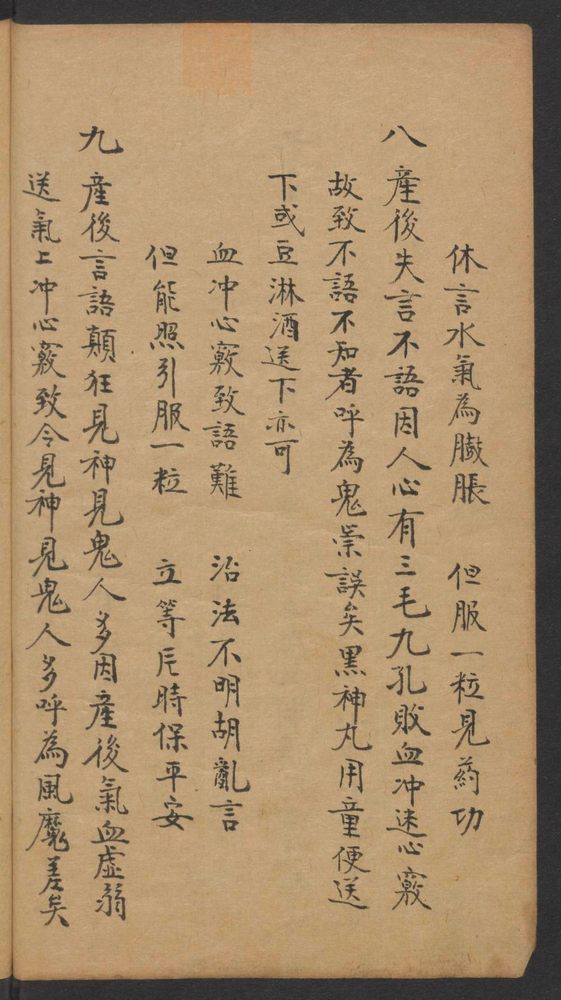 休言水氣為臌脹　但服一粒見葯功
八 產後失言不語因人心有三毛九孔敗血冲迷心竅
故致不語不知者呼為鬼祟誤矣黑神丸用童便送
下或豆淋酒送下亦可
血冲心竅致語難　治法不明胡亂言
但能照引服一粒　立等片時保平安
九 產後言語顛狂見神見鬼人多因產後氣血虛弱
送氣上冲心竅致令見神見鬼人多呼為風魔差矣